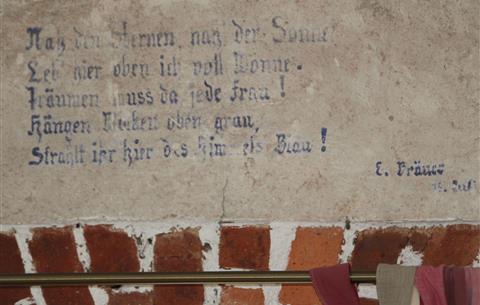 Nah den Sternen, nah' der Sonne
Leb' hier oben ich voll Wonne.
Träumen muss da jede Frau!
Hängen Wolken oben grau,
Strahlt ihr hier des Himmels Blau!
E. Bräuer
Juli